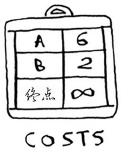 A 6
B 2
终点 ∞
COSTS